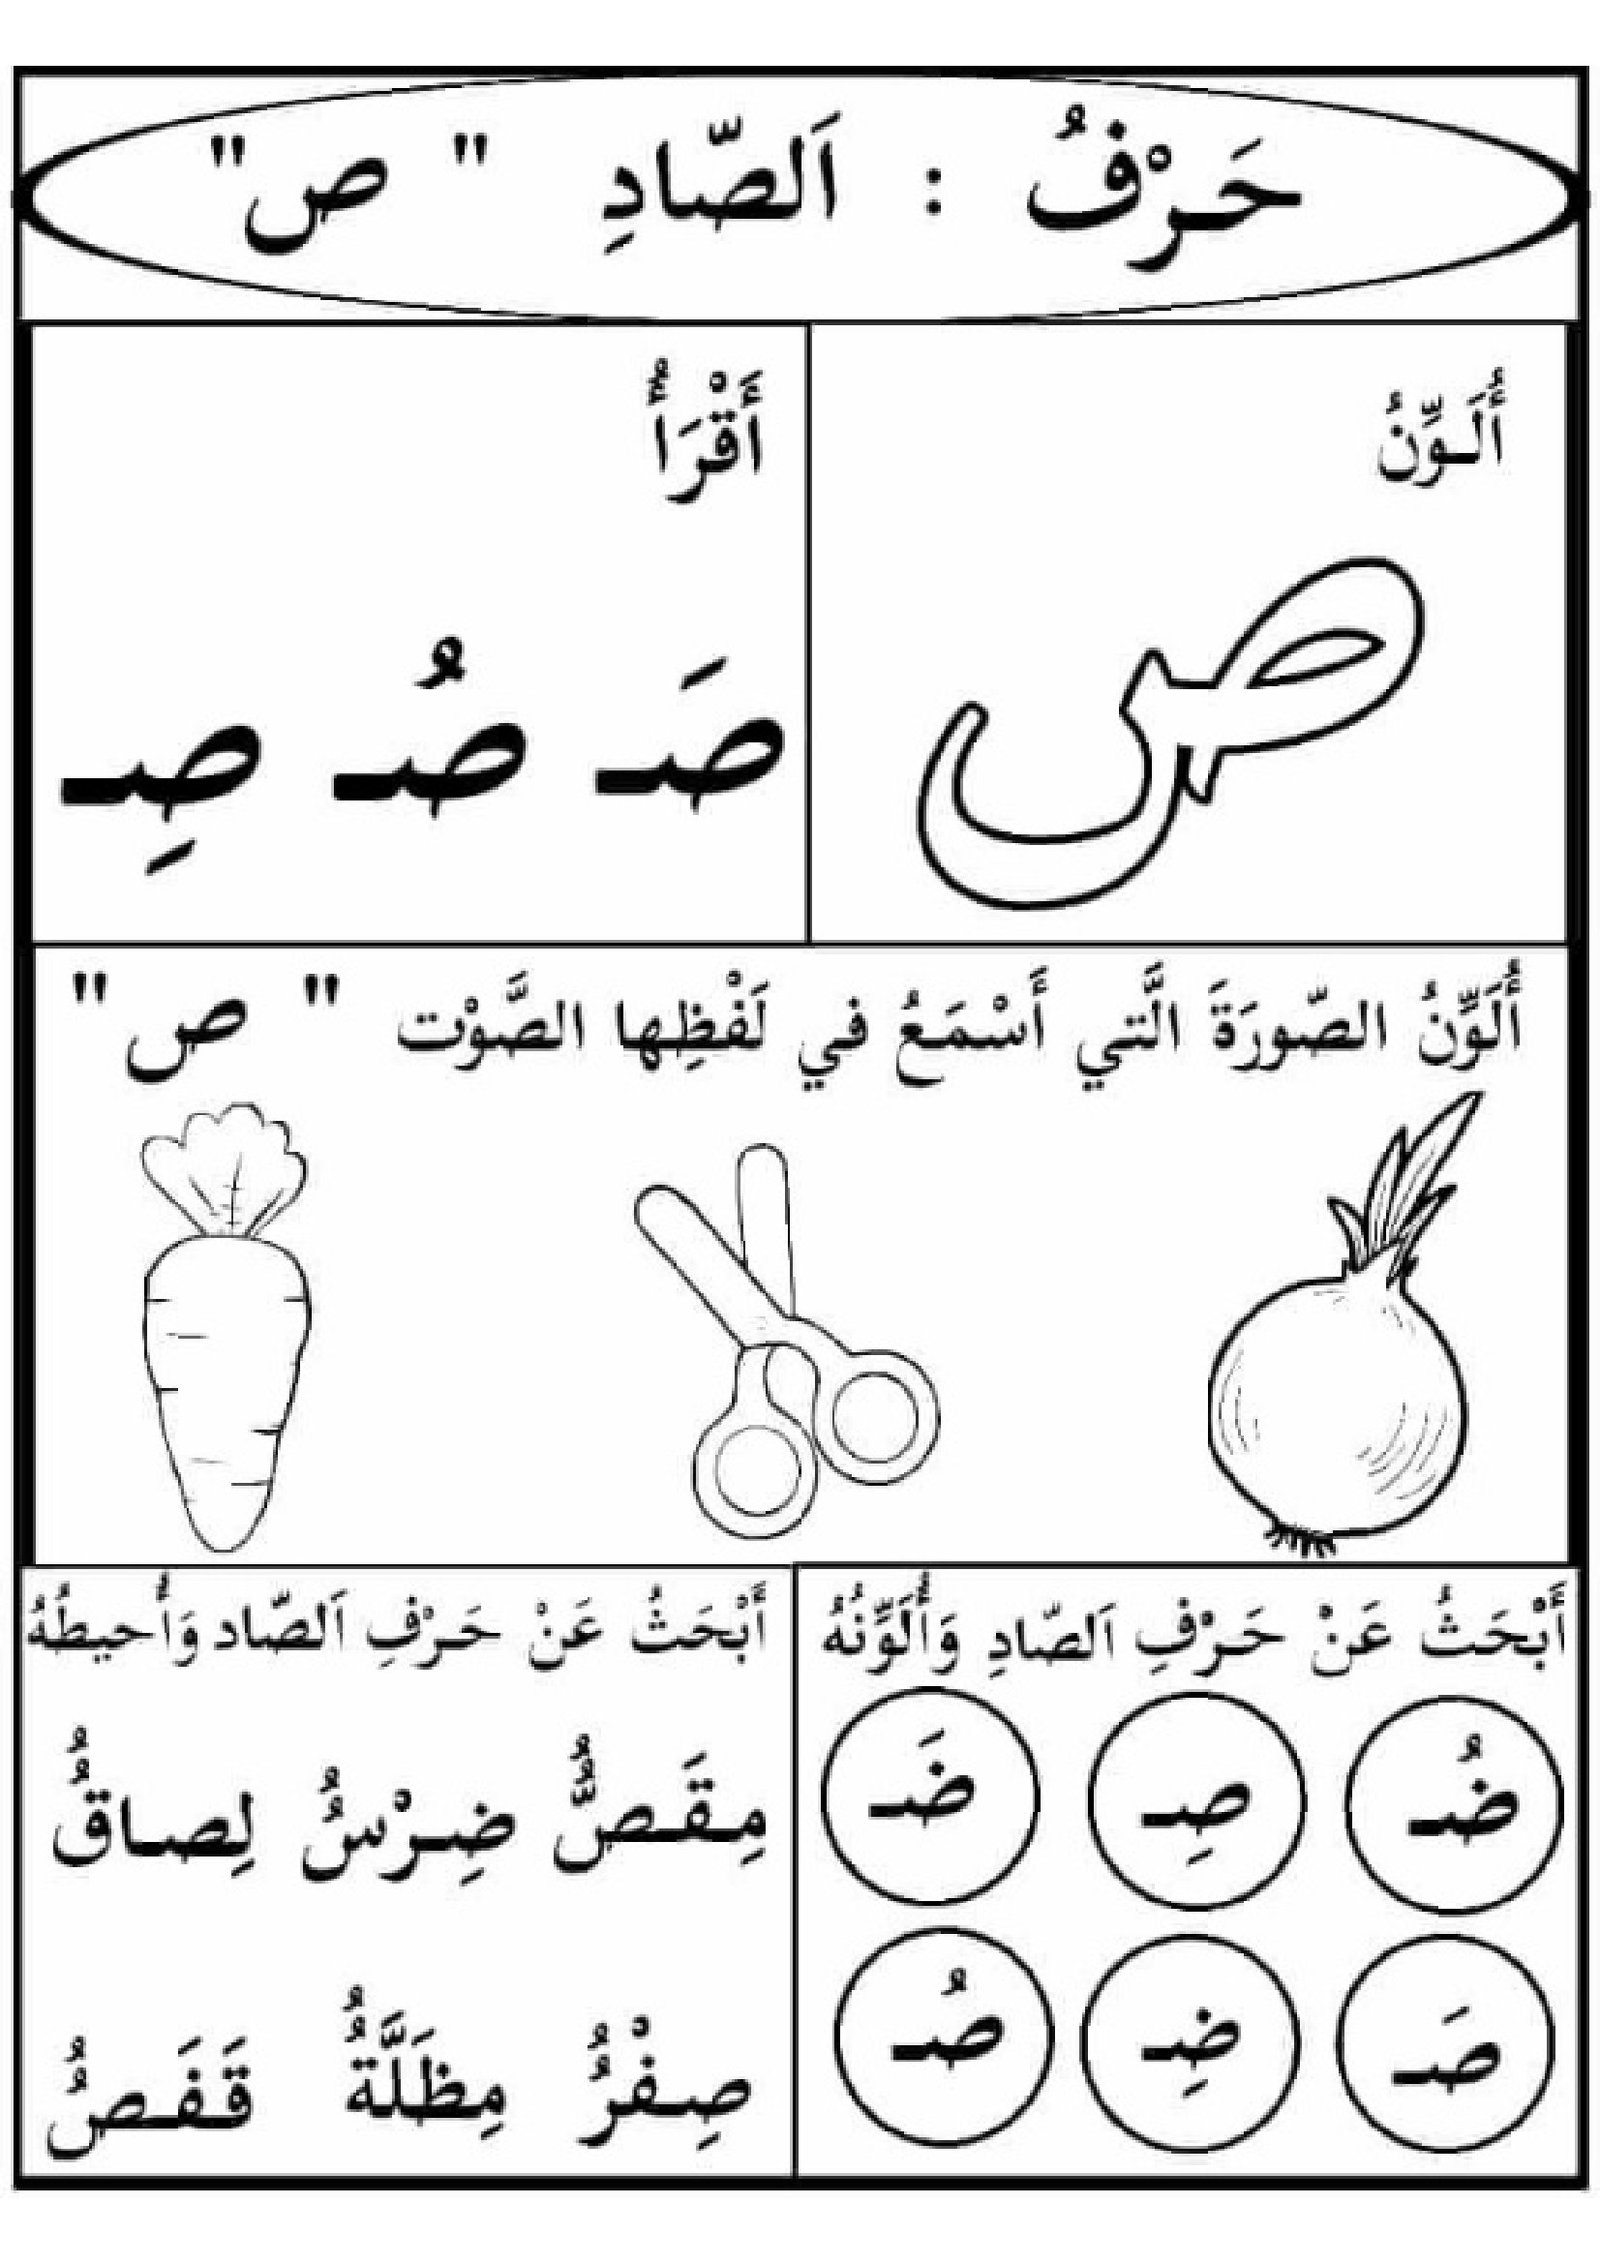 حَـرْفُ : اَلصّادِ " ص"
أُلَـوِّنُ
أَقْرَأُ
صَـ صُـ صِـ
أُلَوِّنُ الصّورَةَ الَّتي أَسْمَعُ في لَفْظِها الصَّوْت " ص "
أَبْحَثُ عَنْ حَـرْفِ اَلصّادِ وَأُلَوِّنُهُ
ضُـ صِـ ضَـ
صَـ ضِـ صُـ
أَبْحَثُ عَنْ حَـرْفِ اَلصّاد وَأُحيطُهُ
مِـقَـصٌّ ضِـرْسٌ لِصـاقٌ
صِـفْرٌ مِظَلَّةٌ قَـفَـصٌ